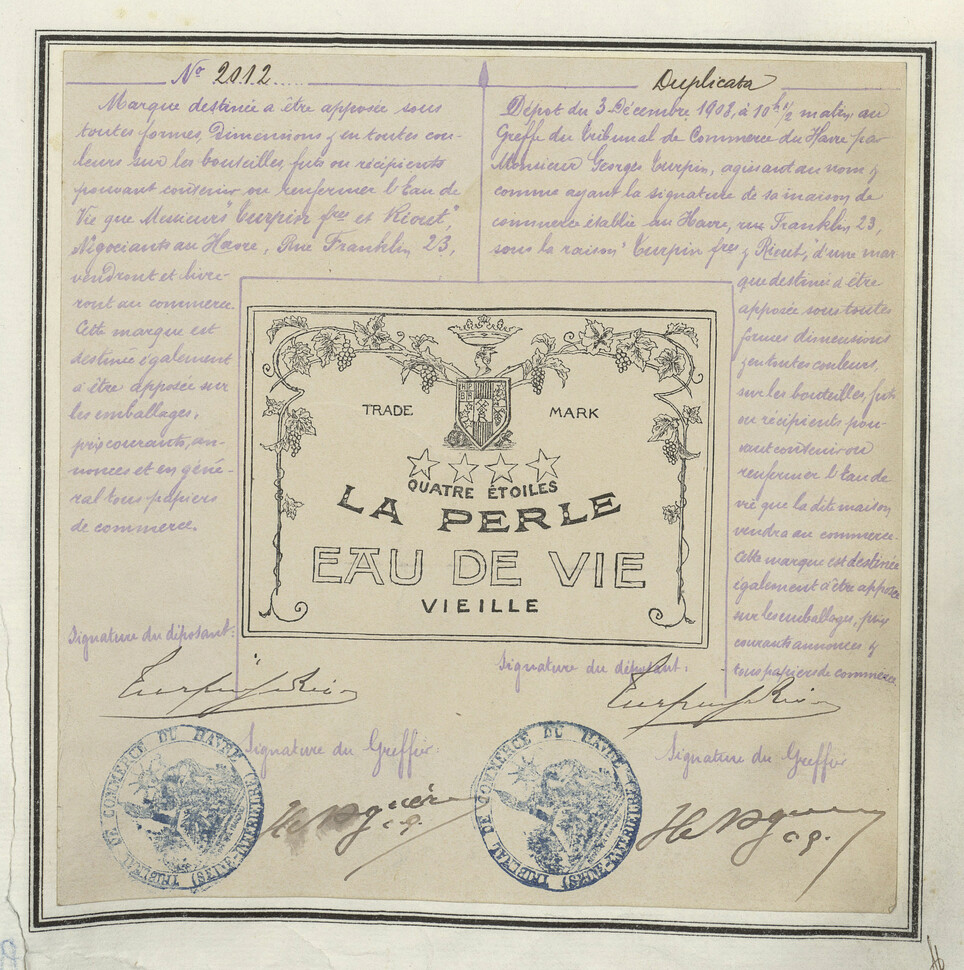 No 2012
Marque destinée a être apposée sous
toutes formes, Dimensions & en toutes cou-
leurs sur les bouteilles, futs ou récipients
pouvant contenir ou renfermer l'Eau de
Vie que Messieurs "Turpin fres et Rioult",
Négociants au Havre, Rue Franklin, 23,
vendront et livre-
ront au commerce.
Cette marque est
destinée également
a être apposée sur
les emballages,
prix courants, an-
nonces et en géné-
ral tous papiers
de commerce.
Signature du déposant:
Signature du Greffier:
Duplicata
Dépot du 3 Décembre 1908, à 10h 1/2 matin, au
Greffe du Tribunal de Commerce du Havre par
Monsieur Georges Turpin, agissant au nom &
comme ayant la signature de sa maison de
commerce établie au Havre, rue Franklin 23,
sous la raison "Turpin fres & Rioult", d'une mar
que destinée à être
apposée sous toutes
formes dimensions
& en toutes couleurs,
sur les bouteilles, futs
ou récipients pou-
vant contenir ou
renfermer l'Eau de
vie que la dite maison
vendra au commerce.
Cette marque est destinée
également à être apposée
sur les emballages, prix
courants annonces &
tous papiers de commerce
Signature du déposant:
Signature du Greffier
TRADE MARK
QUATRE ÉTOILES
LA PERLE
EAU DE VIE
VIEILLE
TRIBUNAL DE COMMERCE DU HAVRE (SEINE-INFÉRIEURE)
TRIBUNAL DE COMMERCE DU HAVRE (SEINE-INFÉRIEURE)